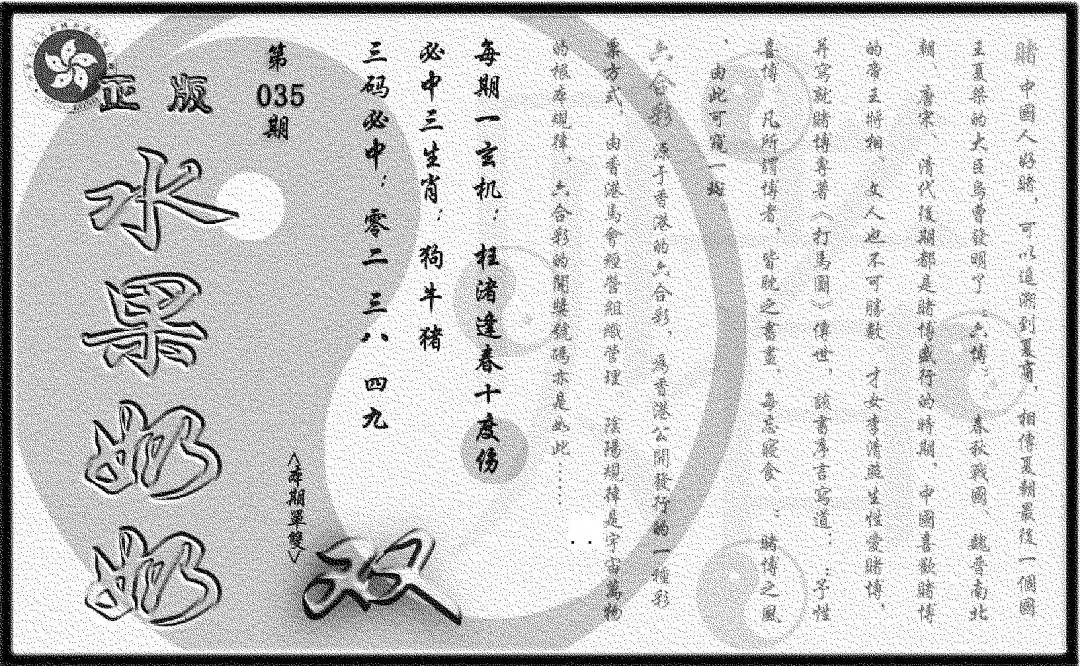 正版
水果奶奶
第
035
期
每期一玄机：枉渚逢春十度伤
必中三生肖：狗牛猪
三码必中：零二 三八 四九
<本期單雙>
双
賭 中國人好賭，可以追溯到夏商，相傳夏朝最後一個國
王夏桀的大臣烏曹發明了：六博； 春秋戰國、魏晉南北
朝、唐宋、清代後期都是賭博盛行的時期，中國喜歡賭博
的帝王將相 文人也不可勝數 才女李清照生性愛賭博，
并寫就賭博專著〈打馬圖〉傳世，該書序言寫道：：予性
喜博，凡所謂博者，皆耽之晝，每忘寢食 ：賭博之風
，由此可窺一斑。
六合彩 源于香港的六合彩，為香港公開發行的一種彩
票方式，由香港馬會經營組織管理 陰陽規律是宇宙萬物
的根本規律，六合彩的開獎號碼亦是如此……